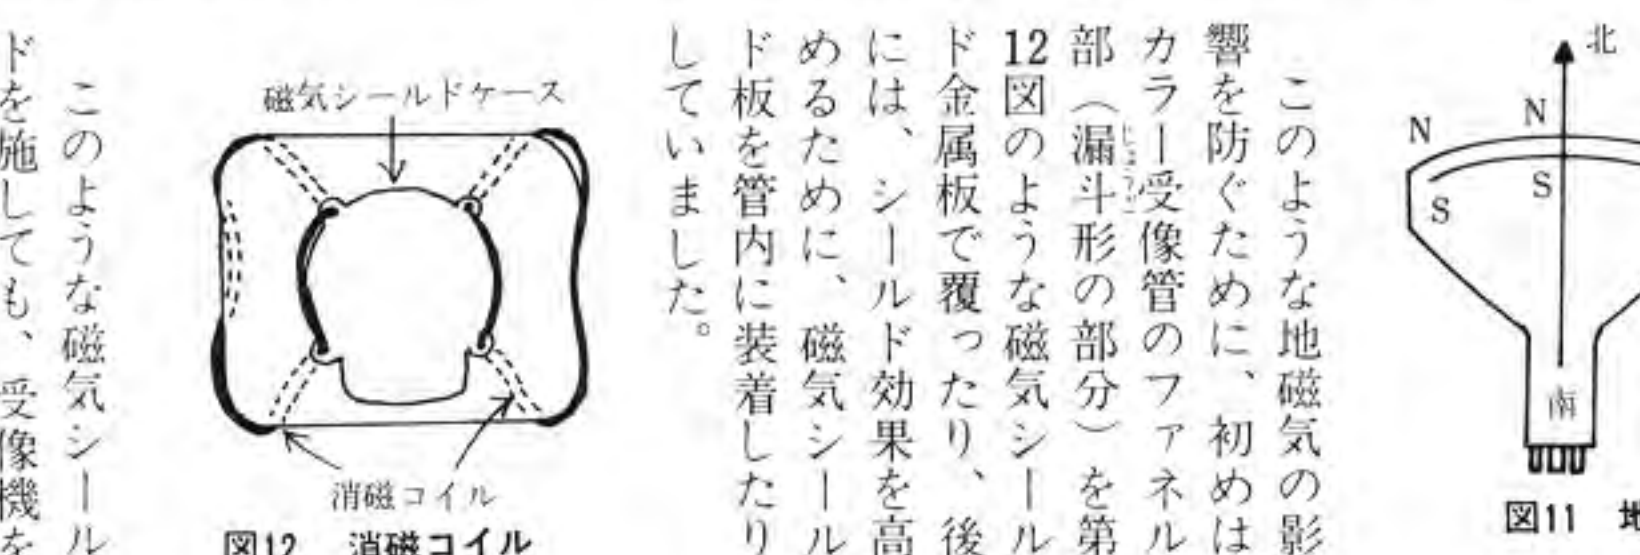 北
N
N
S
S
南
図11 地
このような地磁気の影
響を防ぐために、初めは
カラー受像管のファネル
部（漏斗形の部分）を第
じょうご
12図のような磁気シール
ド金属板で覆ったり、後
には、シールド効果を高
めるために、磁気シール
ド板を管内に装着したり
していました。
磁気シールドケース
消磁コイル
図12 消磁コイル
このような磁気シール
ドを施しても、受像機を